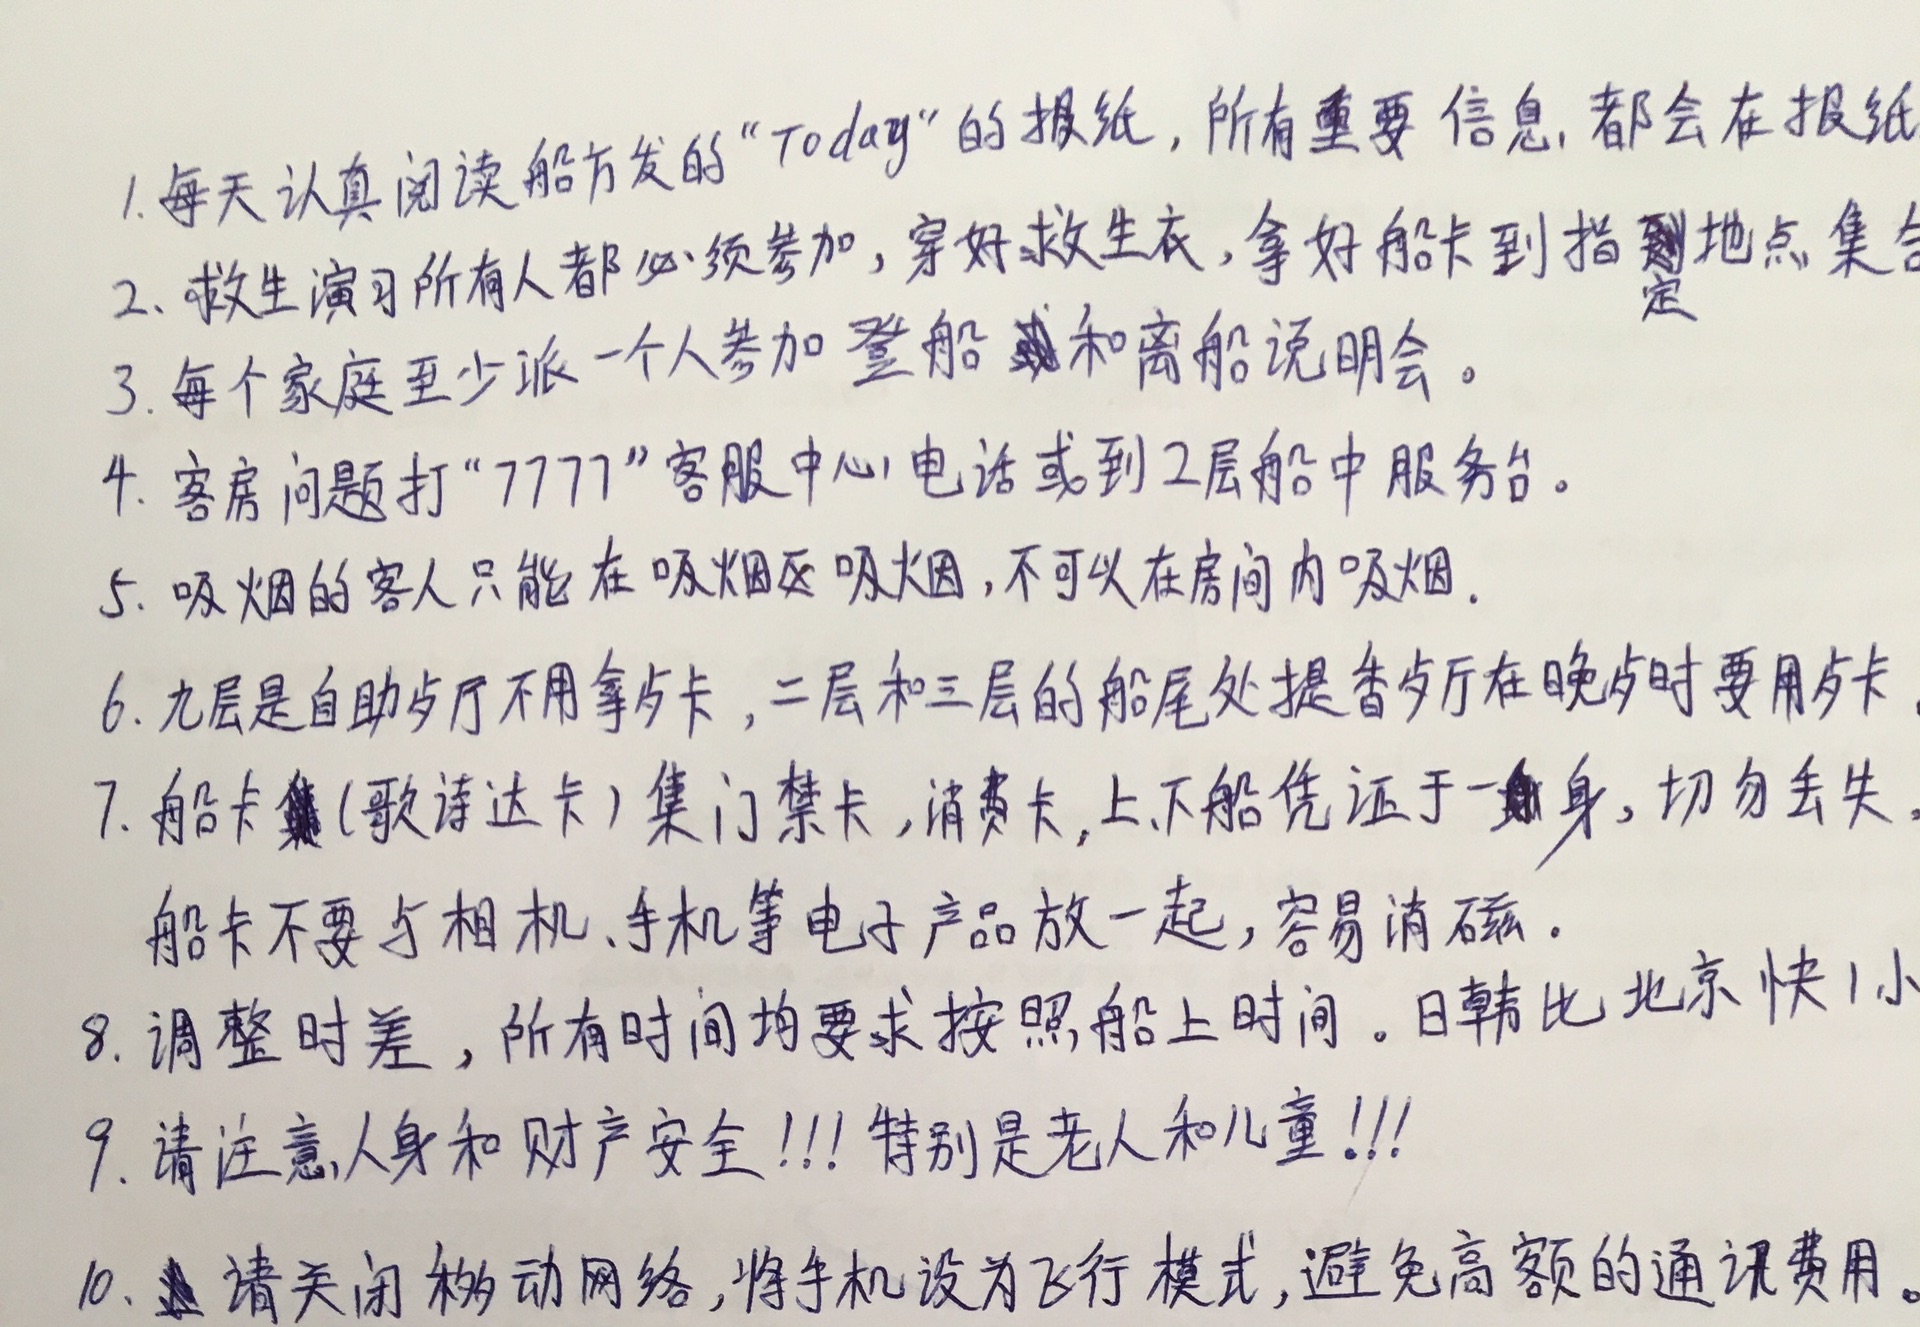 1.每天认真阅读船方发的“Today”的报纸，所有重要信息，都会在报纸
2、救生演习所有人都必须参加，穿好救生衣，拿好船卡到指定地点集合
3.每个家庭至少派一个人参加登船和离船说明会。
4.客房问题打“7777”客服中心电话或到2层船中服务台。
5.吸烟的客人只能在吸烟区吸烟，不可以在房间内吸烟.
6.九层是自助歺厅不用拿歺卡，二层和三层的船尾处提香歺厅在晚歺时要用歺卡.
7.船卡(歌诗达卡)集门禁卡，消费卡，上、下船凭证于一身，切勿丢失。
船卡不要与相机、手机等电子产品放一起，容易消磁.
8.调整时差，所有时间均要求按照船上时间。日韩比北京快1小
9.请注意人身和财产安全!!!特别是老人和儿童!!!
10.请关闭移动网络，将手机设为飞行模式，避免高额的通讯费用。